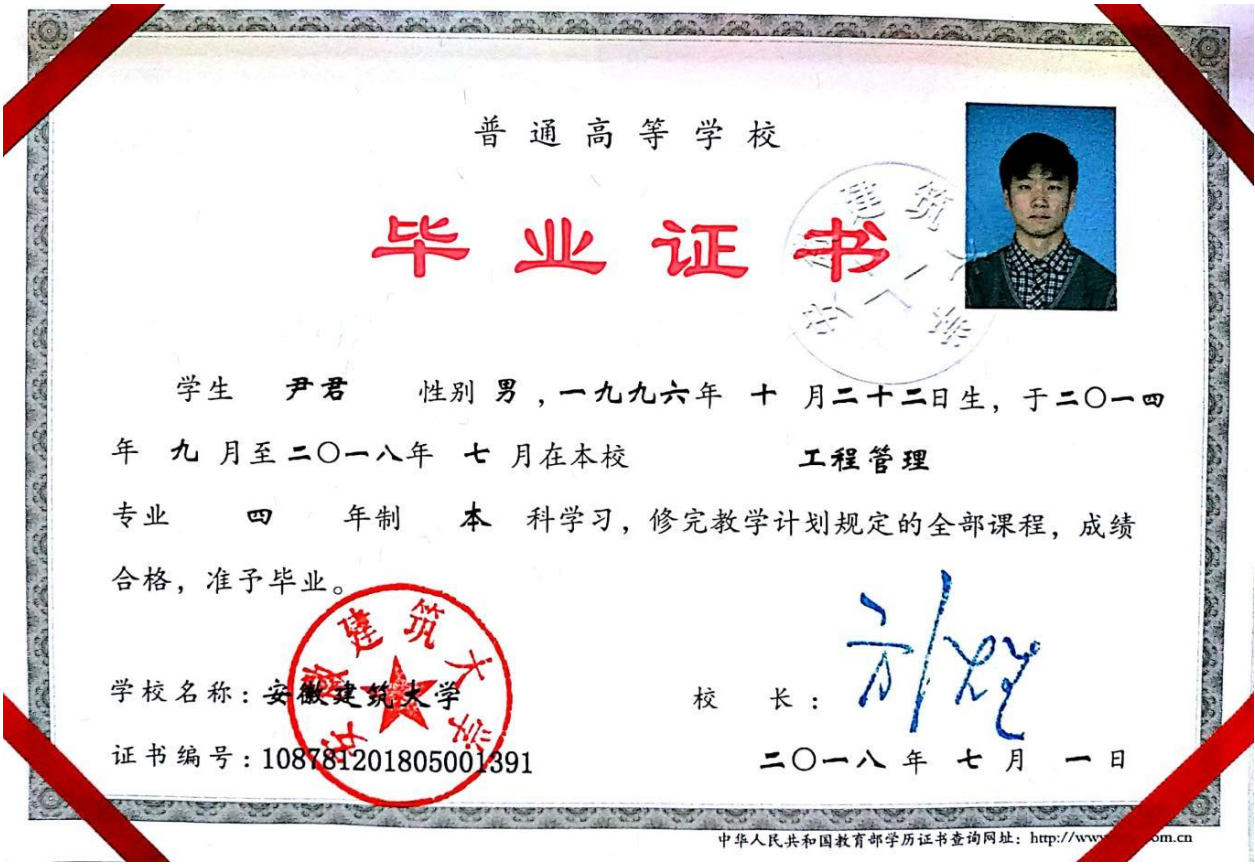 普通高等学校
毕业证书
学生 尹君 性别 男,一九九六年 十 月二十二日生,于二〇一四
年 九 月至二〇一八年 七 月在本校 工程管理
专业 四 年制 本 科学习,修完教学计划规定的全部课程,成绩
合格,准予毕业。
学校名称:安徽建筑大学
校 长:
证书编号:108781201805001391
二〇一八 年 七 月 一 日
安徽建筑大学
安徽建筑大学
中华人民共和国教育部学历证书查询网址:http://www
om.cn